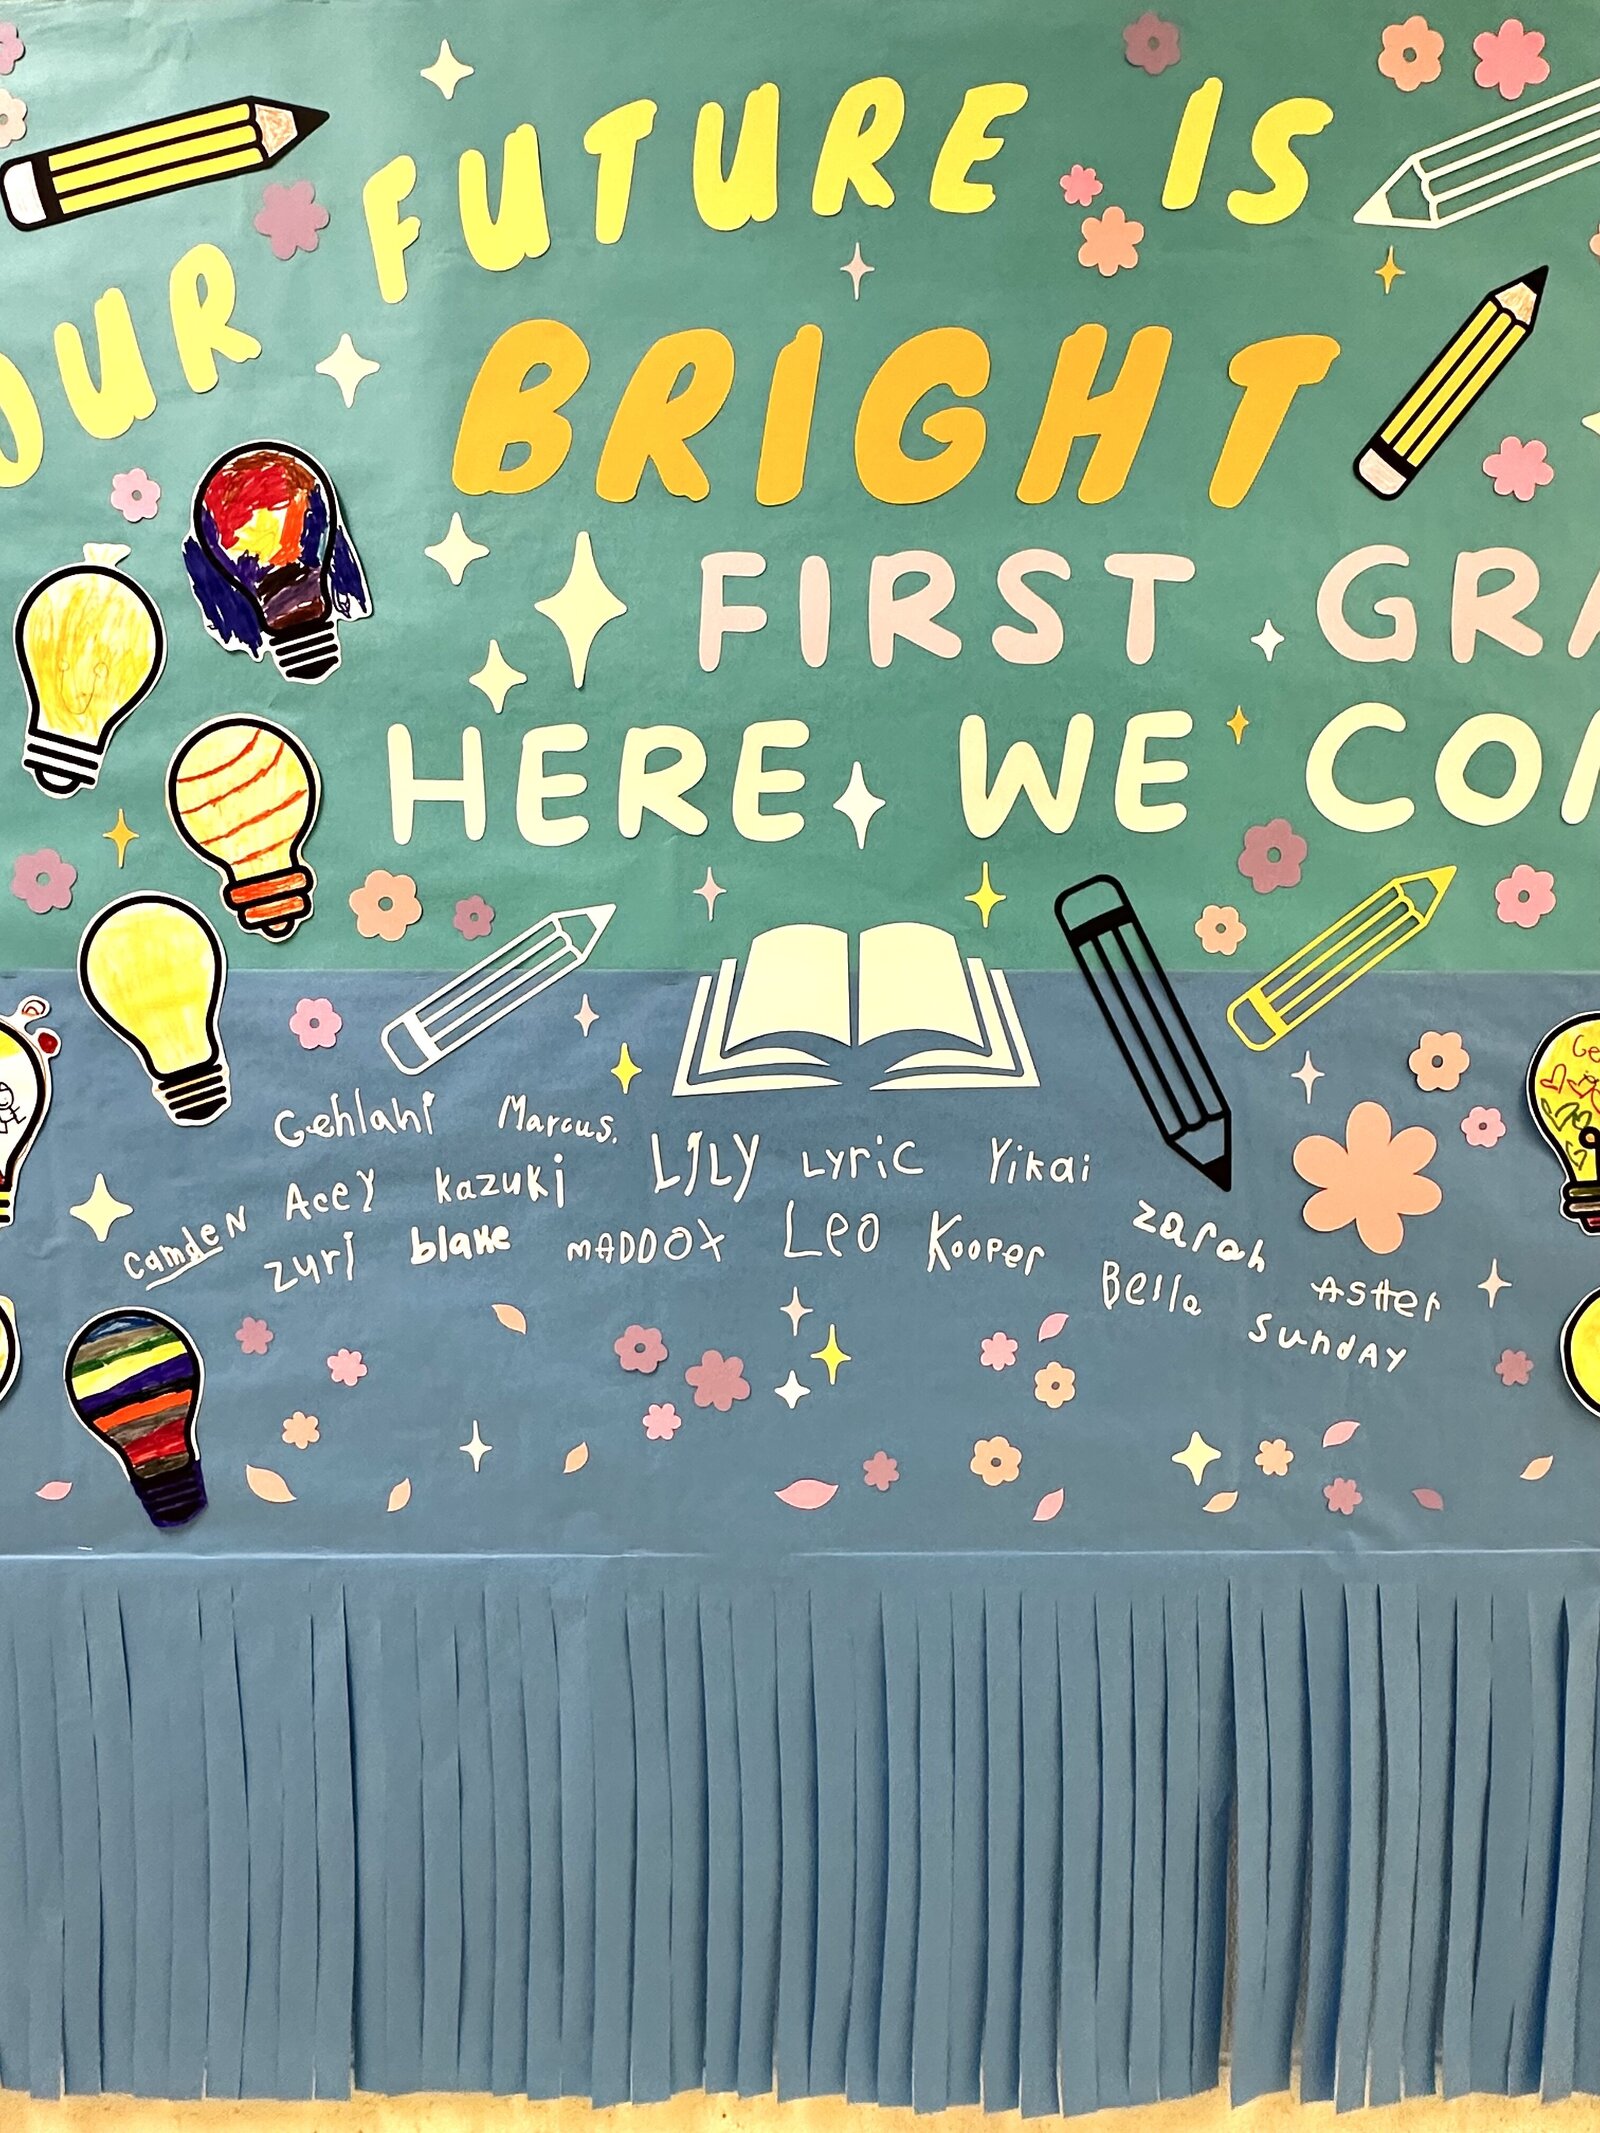 OUR FUTURE IS
BRIGHT
FIRST GRA
HERE WE COM
Gehlani Marcus.
Acey Kazuki LiLY Lyric Yikai
CamdeN Zuri blake MADDOX Leo Kooper Zarah
Bella AsHer
SundAy
Ge